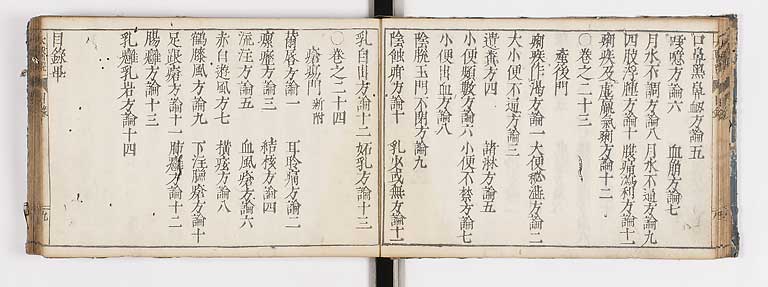 口鼻黑鼻衄方論五
噫方論六　血崩方論七
月水不調方論八　月水不通方論九
四肢浮腫方論十　腹痛瀉利方論十一
痢疾及虛羸氣痢方論十二
〇卷之二十三
產後門
痢疾作渴方論一　大便秘澁方論二
大小便不通方論三
遺糞方四　諸淋方論五
小便頻數方論六　小便不禁方論七
小便出血方論八
陰脫玉門不閉方論九
陰蝕瘡方論十　乳少或無方論十一
乳自出方論十二　妬乳方論十三
〇卷之二十四
瘡瘍門　新附
繭唇方論一　耳痛方論二
瘰癧方論三　結核方論四
流注方論五　血風瘡方論六
赤白遊風方七　橫痃方論八
鶴膝風方論九　下注臁瘡方論十
足跟瘡方論十一　肺癰方論十二
腸癰方論十三
乳癰乳岩方論十四
目錄畢